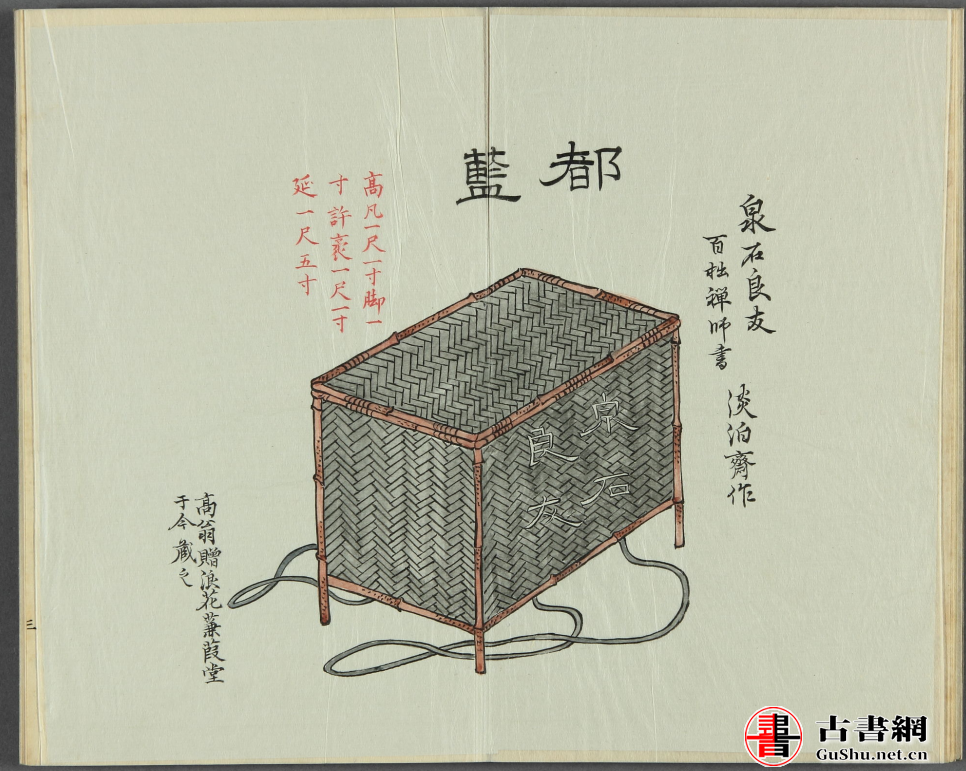 都籃
泉石良友
百拙禅師書　淡泊齋作
高凡一尺一寸脚一
寸許袤一尺一寸
延一尺五寸
泉石
良友
高翁贈浪花蒹葭堂
于今藏之
三
古書網
GuShu.net.cn